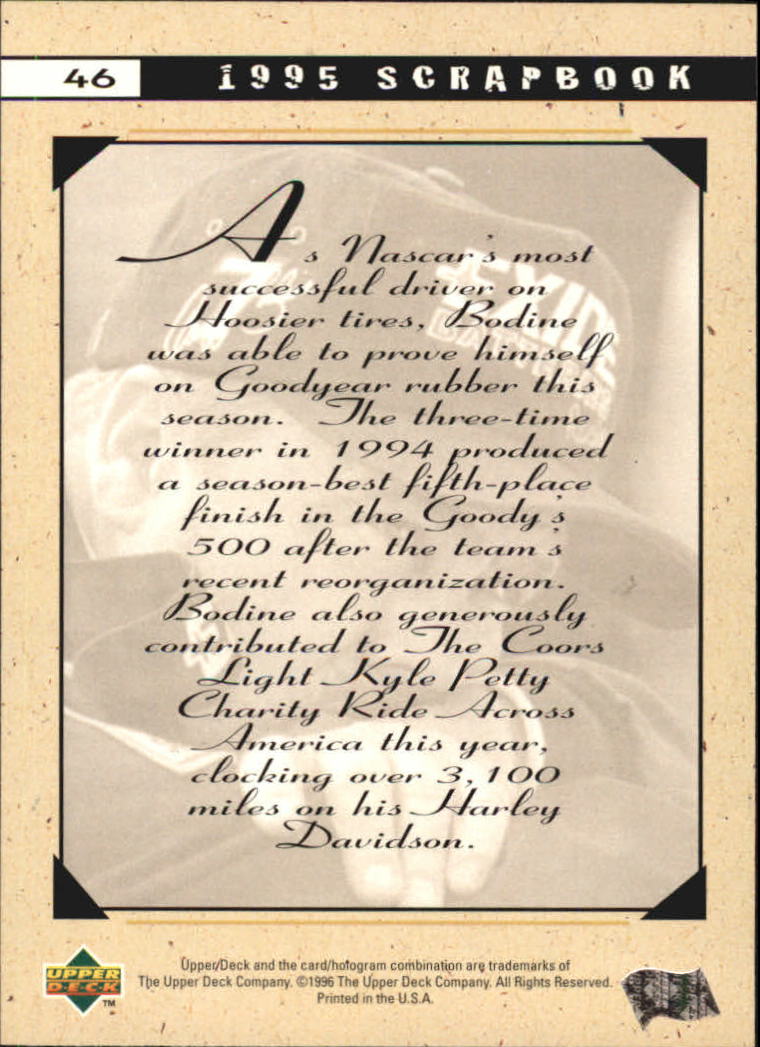 46
1995 SCRAPBOOK
As Nascar's most
successful driver on
Hoosier tires, Bodine
was able to prove himself
on Goodyear rubber this
season. The three-time
winner in 1994 produced
a season-best fifth-place
finish in the Goody's
500 after the team's
recent reorganization.
Bodine also generously
contributed to The Coors
Light Kyle Petty
Charity Ride Across
America this year,
clocking over 3,100
miles on his Harley
Davidson.
EXIDE
UPPER
DECK
TM
Upper Deck and the card/hologram combination are trademarks of
The Upper Deck Company. ©1996 The Upper Deck Company. All Rights Reserved.
Printed in the U.S.A.